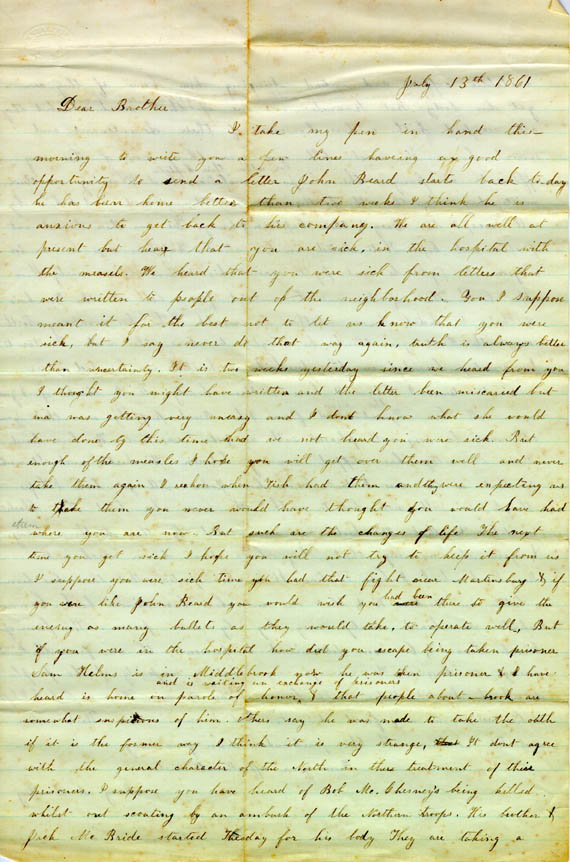 July 13th 1861
Dear Brother
I take my pen in hand this
morning to write you a few lines haveing a good
opportunity to send a letter John Beard starts back to-day
he has been home better than two weeks I think he is
anxious to get back to his company. We are all well at
present but hear that you are sick, in the hospital with
the measels. We heard that you were sick from letters that
were written to people out of the neighborhood. You I suppose
meant it for the best not to let us know that you were
sick, but I say never do that way again, truth is always better
than uncertainty. It is two weeks yesterday since we heard from you
I thought you might have written and the letter been miscaried but
ma was getting very uneasy and I dont know what she would
have done by this time had we not heard you were sick. But
enough of the measles I hope you will get over them well and never
take them again I reckon when Tish had them and they were expecting us
to take them you never would have thought you would have had
them
where you are now. But such are the changes of life The next
time you get sick I hope you will not try to keep it from us
I suppose you were sick time you had that fight near Martinsburg & if
you were like John Beard you would wish you had been there to give the
enemy as many bullets as they would take, to operate well, But
if you were in the hospital how did you escape being taken prisoner
Sam Helms is in Middlebrook now he was then prisoner & I have
and is waiting an exchange of prisoners
heard is home on parole of honor, & that people about brook are
somewhat suspicious of him others say he was made to take the oath
if it is the former way I think it is very strange, It dont agree
with the general character of the North in there treatment of their
prisoners. I suppose you have heard of Bob Mc. Chesney's being killed
whilst out scouting by an ambush of the Northern troops. His brother &
Jack Mc Bride started Tuesday for his body They are taking a